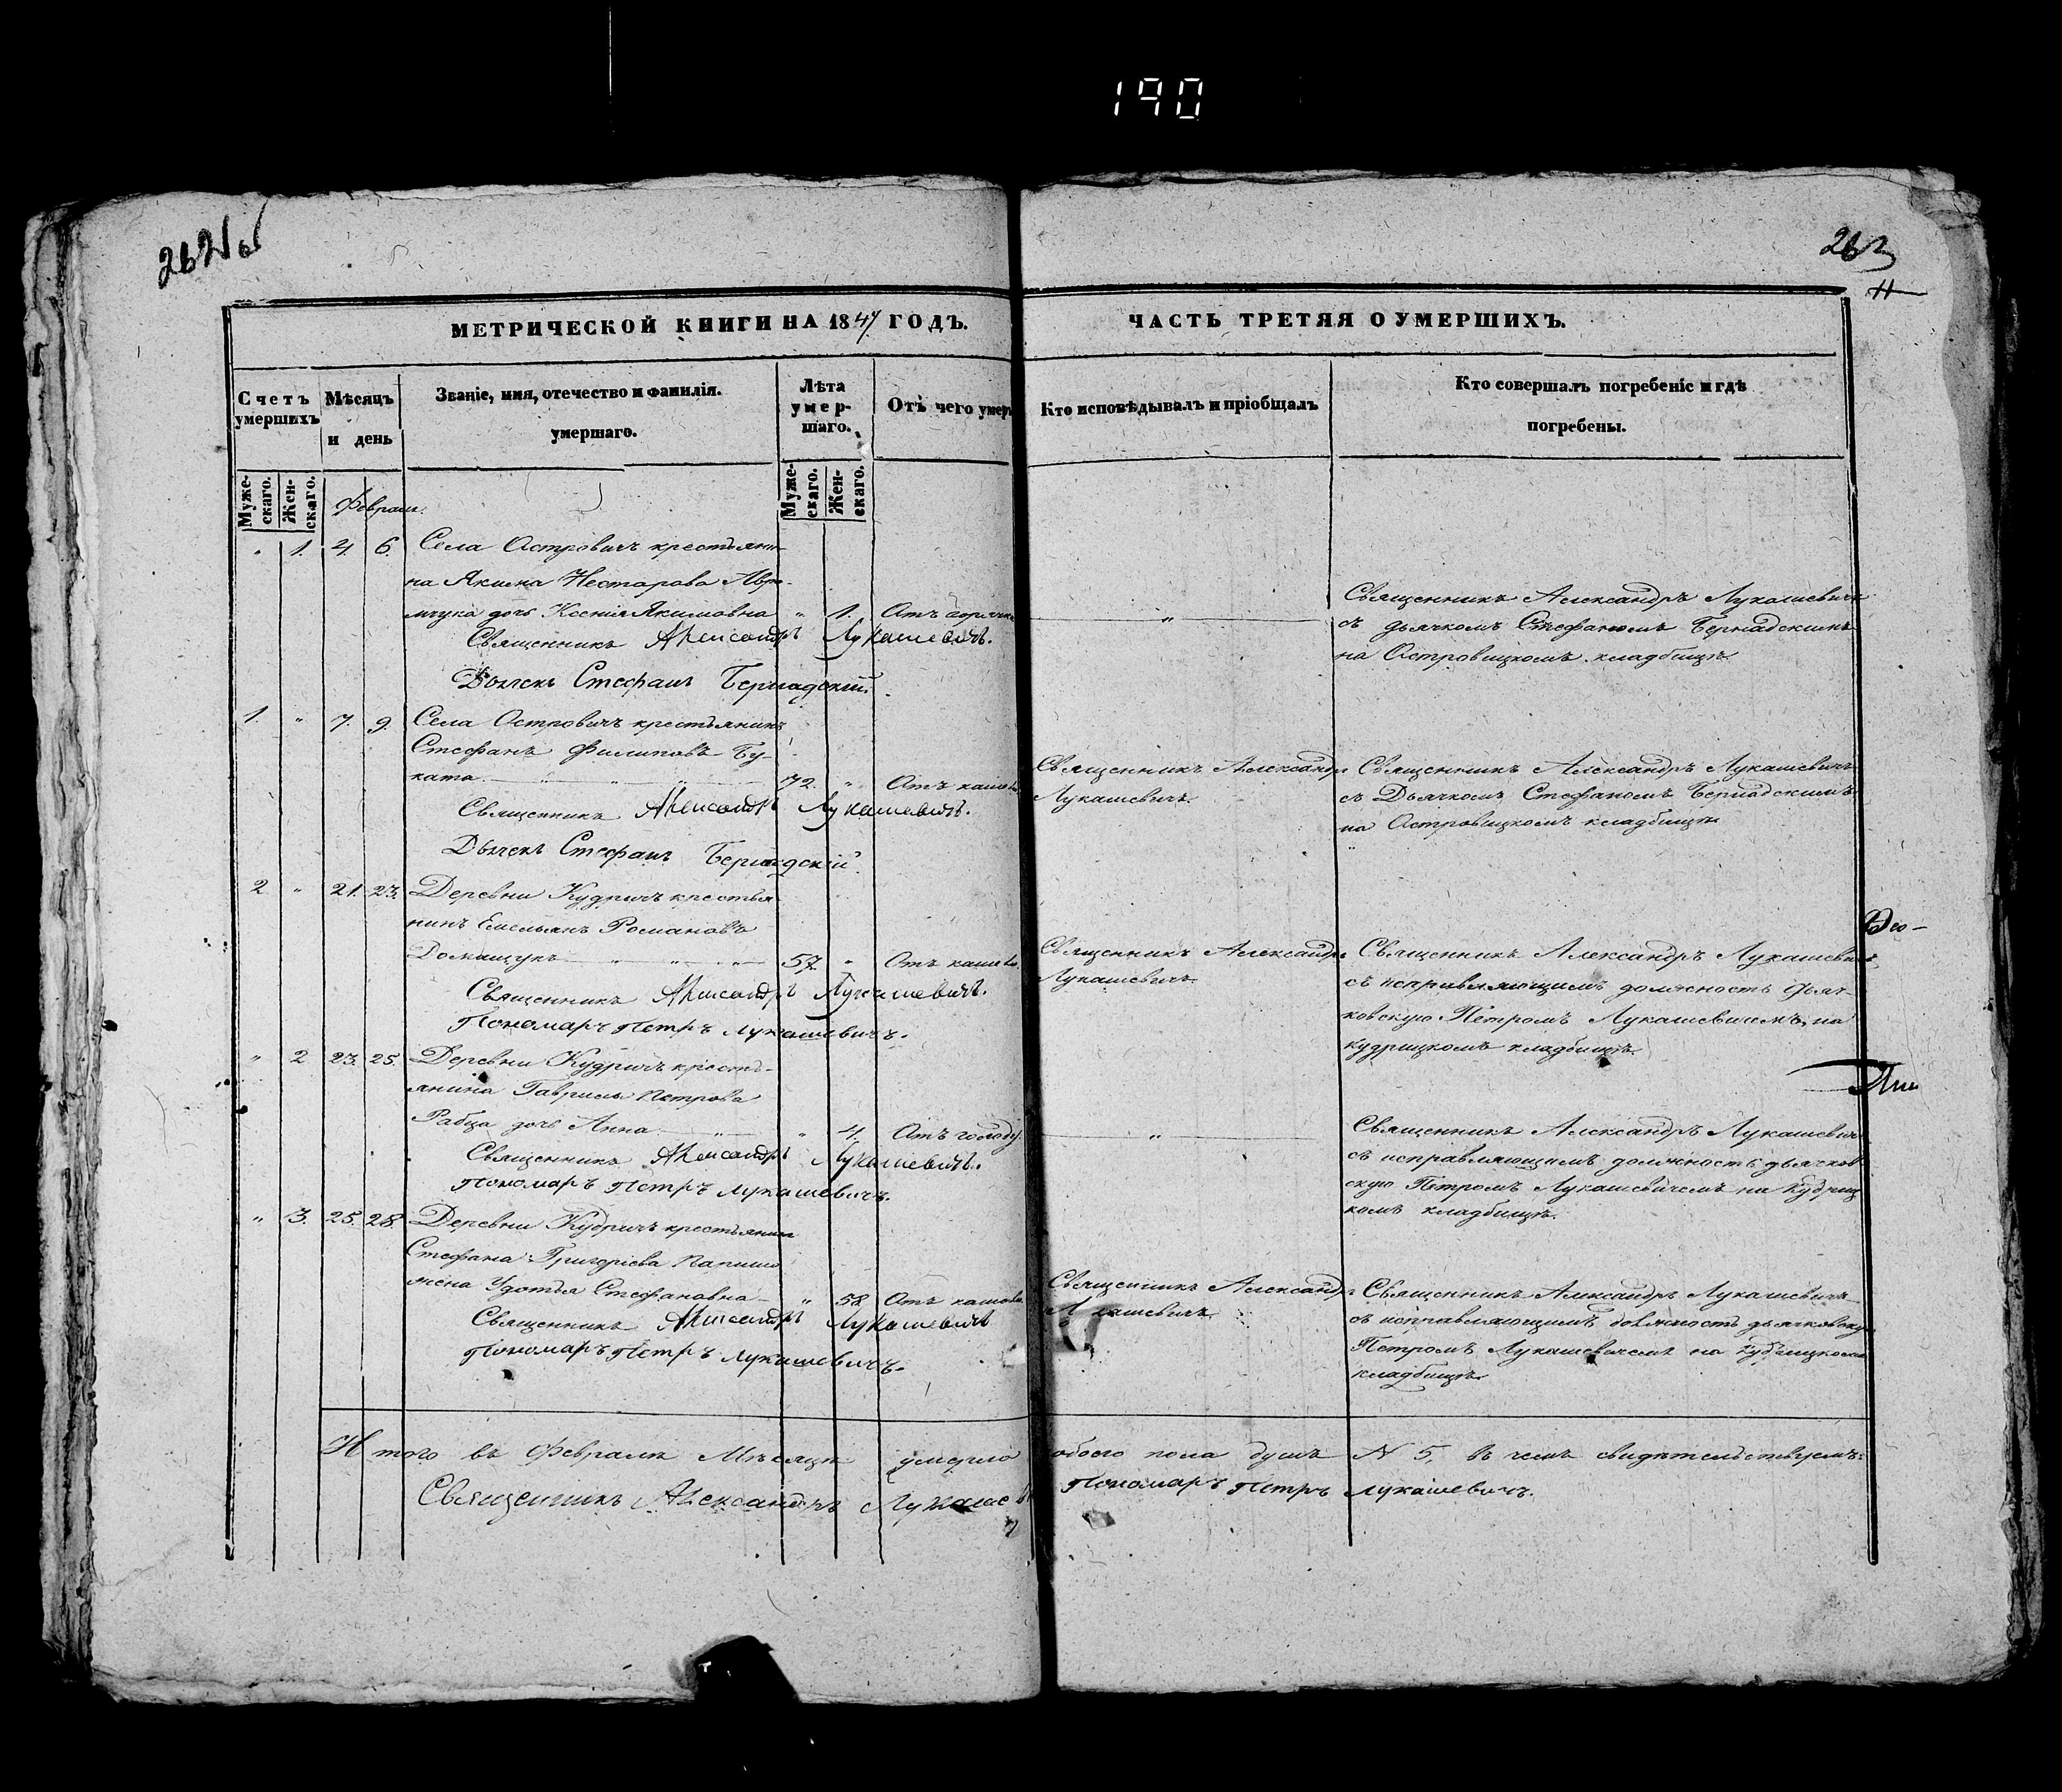 190
262 об
263
11
МЕТРИЧЕСКОЙ КНИГИ НА 1847 ГОДЪ.
ЧАСТЬ ТРЕТЯЯ О УМЕРШИХЪ.
Счетъ умершихъ
Мѣсяцъ и день
Званіе, имя, отечество и фамилія.
умершаго.
Лѣта умер-
шаго.
Отъ чего умеръ
Кто исповѣдывалъ и пріобщалъ
Кто совершалъ погребеніе и гдѣ
погребены.
Муже-
скаго.
Жен-
скаго.
Муже-
скаго.
Жен-
скаго.
Февраля.
" 1. 4. 6. Села Островичъ крестьяни-
на Якима Нестарова
дочь Ксенія Якимовна " 1. Отъ горячки
"
Священникъ Александръ Лукашевичъ
съ дьячкомъ Стефаномъ Бернадскимъ
на Островицкомъ кладбищѣ.
Священникъ Александръ Лукашевичъ.
Дьячекъ Стефанъ Бернадскій.
1. " 7. 9. Села Островичъ крестьянинъ
Стефанъ Филиповъ Бу-
ката " " " 72. " Отъ кашля
Священникъ Александръ
Лукашевичъ.
Священникъ Александръ Лукашевичъ
съ Дьячкомъ Стефаномъ Бернадскимъ
на Островицкомъ кладбищѣ
Священникъ Александръ Лукашевичъ.
Дьячекъ Стефанъ Бернадскій.
2 " 21. 23. Деревни Кудричъ крестья
нинъ Емельянъ Романовъ
Домащукъ " " " 57. " Отъ кашля.
Священникъ Александръ
Лукашевичъ.
Священникъ Александръ Лукашевичъ
съ исправляющимъ должность дьяч-
ковскую Петромъ Лукашевичемъ, на
кудрицкомъ кладбищѣ.
Священникъ Александръ Лукашевичъ.
Пономаръ Петръ Лукашевичъ.
" 2 23. 25. Деревни Кудричъ кресть-
янина Гавриила Петрова
Рабца дочь Анна " " 4. Отъ голоду.
"
Священникъ Александръ Лукашевичъ
съ исправляющимъ должность дьячков
скую Петромъ Лукашевичемъ на Кудриц
комъ кладбищѣ.
Священникъ Александръ Лукашевичъ.
Пономаръ Петръ Лукашевичъ.
" 3. 25. 28. Деревни Кудричъ крестьянина
Стефана Григоріева
жена Стефановна " 58. Отъ кашля.
Священникъ Александръ
Лукашевичъ.
Священникъ Александръ Лукашевичъ
съ исправляющимъ должность дьячковскую
Петромъ Лукашевичемъ на Кудрицкомъ
кладбищѣ.
Священникъ Александръ Лукашевичъ
Пономаръ Петръ Лукашевичъ.
Итого въ Февралѣ Мѣсяцѣ умерло обоего пола душъ N 5, въ чемъ свидѣтельствуемъ:
Священникъ Александръ Лукашевичъ
Пономаръ Петръ Лукашевичъ.